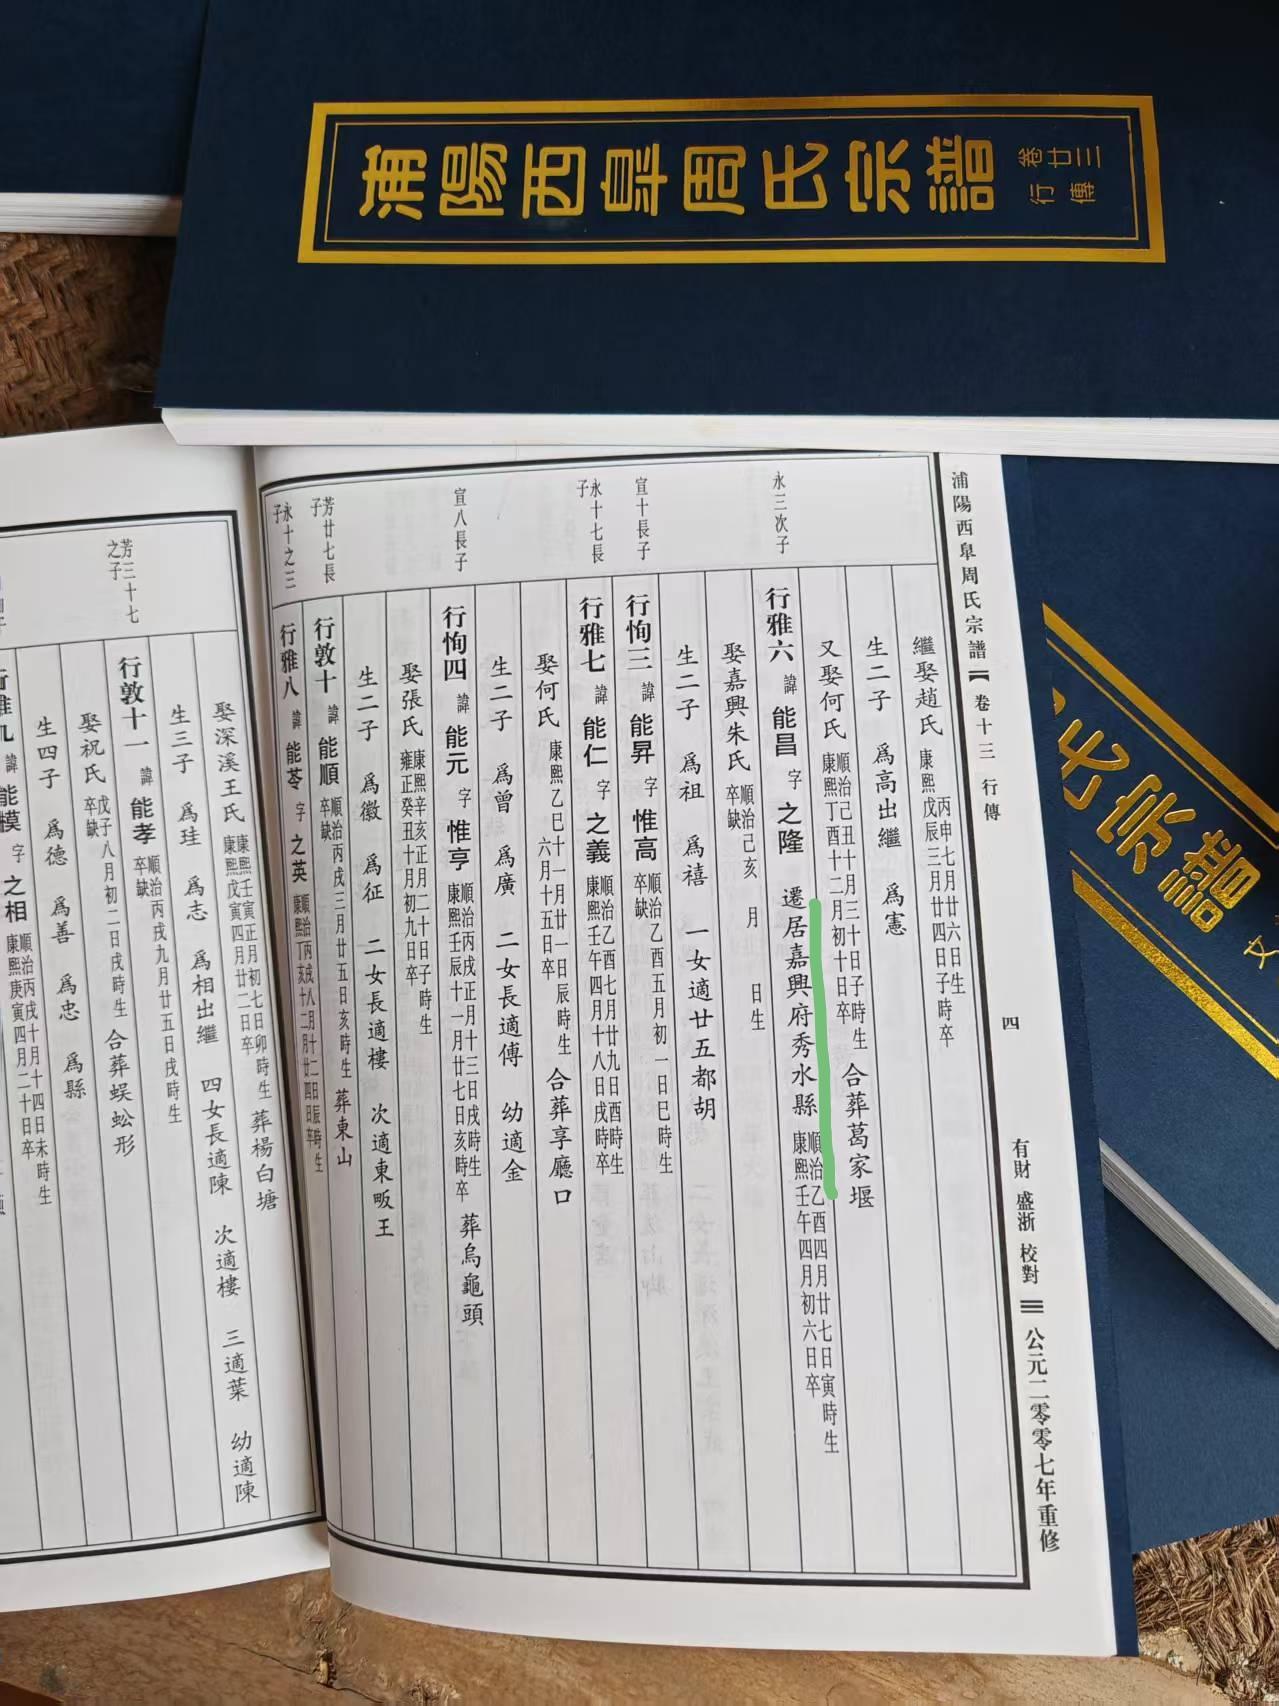 浦陽西皐周氏宗譜
卷廿三
行傳
氏宗譜
文
浦陽西皐周氏宗譜 卷十三 行傳
四
有財 盛浙 校對
公元二零零七年重修
繼娶趙氏 康熙戊辰三月廿四日子時卒
丙申七月廿六日生
生二子 爲高出繼 爲憲
又娶何氏 順治己丑十月三十日子時生 康熙丁酉十二月初十日卒 合葬葛家堰
永三次子
行雅六 諱 能昌 字 之隆 遷居嘉興府秀水縣 順治乙酉四月廿七日寅時生 康熙壬午四月初六日卒
娶嘉興朱氏 順治己亥 月 日生 卒缺
生二子 爲祖 爲禧 一女適廿五都胡
宣十長子
行恂三 諱 能昇 字 惟高 順治乙酉五月初一日巳時生 卒缺
永十七長子
行雅七 諱 能仁 字 之義 順治乙酉七月廿九日酉時生 康熙壬午四月十八日戌時卒
娶何氏 康熙乙巳十一月廿一日辰時生 六月十五日卒 合葬享廳口
生二子 爲曾 爲廣 二女長適傅 幼適金
宣八長子
行恂四 諱 能元 字 惟亨 順治丙戌正月十三日戌時生 康熙壬辰十一月廿七日亥時卒 葬烏龜頭
娶張氏 康熙辛亥正月二十日子時生 雍正癸丑十月初九日卒
生二子 爲徽 爲征 二女長適樓 次適東畈王
芳廿七長子
行敦十 諱 能順 順治丙戌三月廿五日亥時生 卒缺 葬東山
永十之三子
行雅八 諱 能苓 字 之英 順治丙戌八月十二日辰時生 康熙丁亥十二月廿四日卒
娶深溪王氏 康熙壬寅正月初七日卯時生 康熙戊寅四月廿二日卒 葬楊白塘
生三子 爲珪 爲志 爲相出繼 四女長適陳 次適樓 三適葉 幼適陳
芳三十七之子
行敦十一 諱 能孝 順治丙戌九月廿五日戌時生 卒缺
娶祝氏 戊子八月初二日戌時生 卒缺 合葬蜈蚣形
生四子 爲德 爲善 爲忠 爲縣
行雅九 諱 能模 字 之相 順治丙戌十月十四日未時生 康熙庚寅四月二十日卒